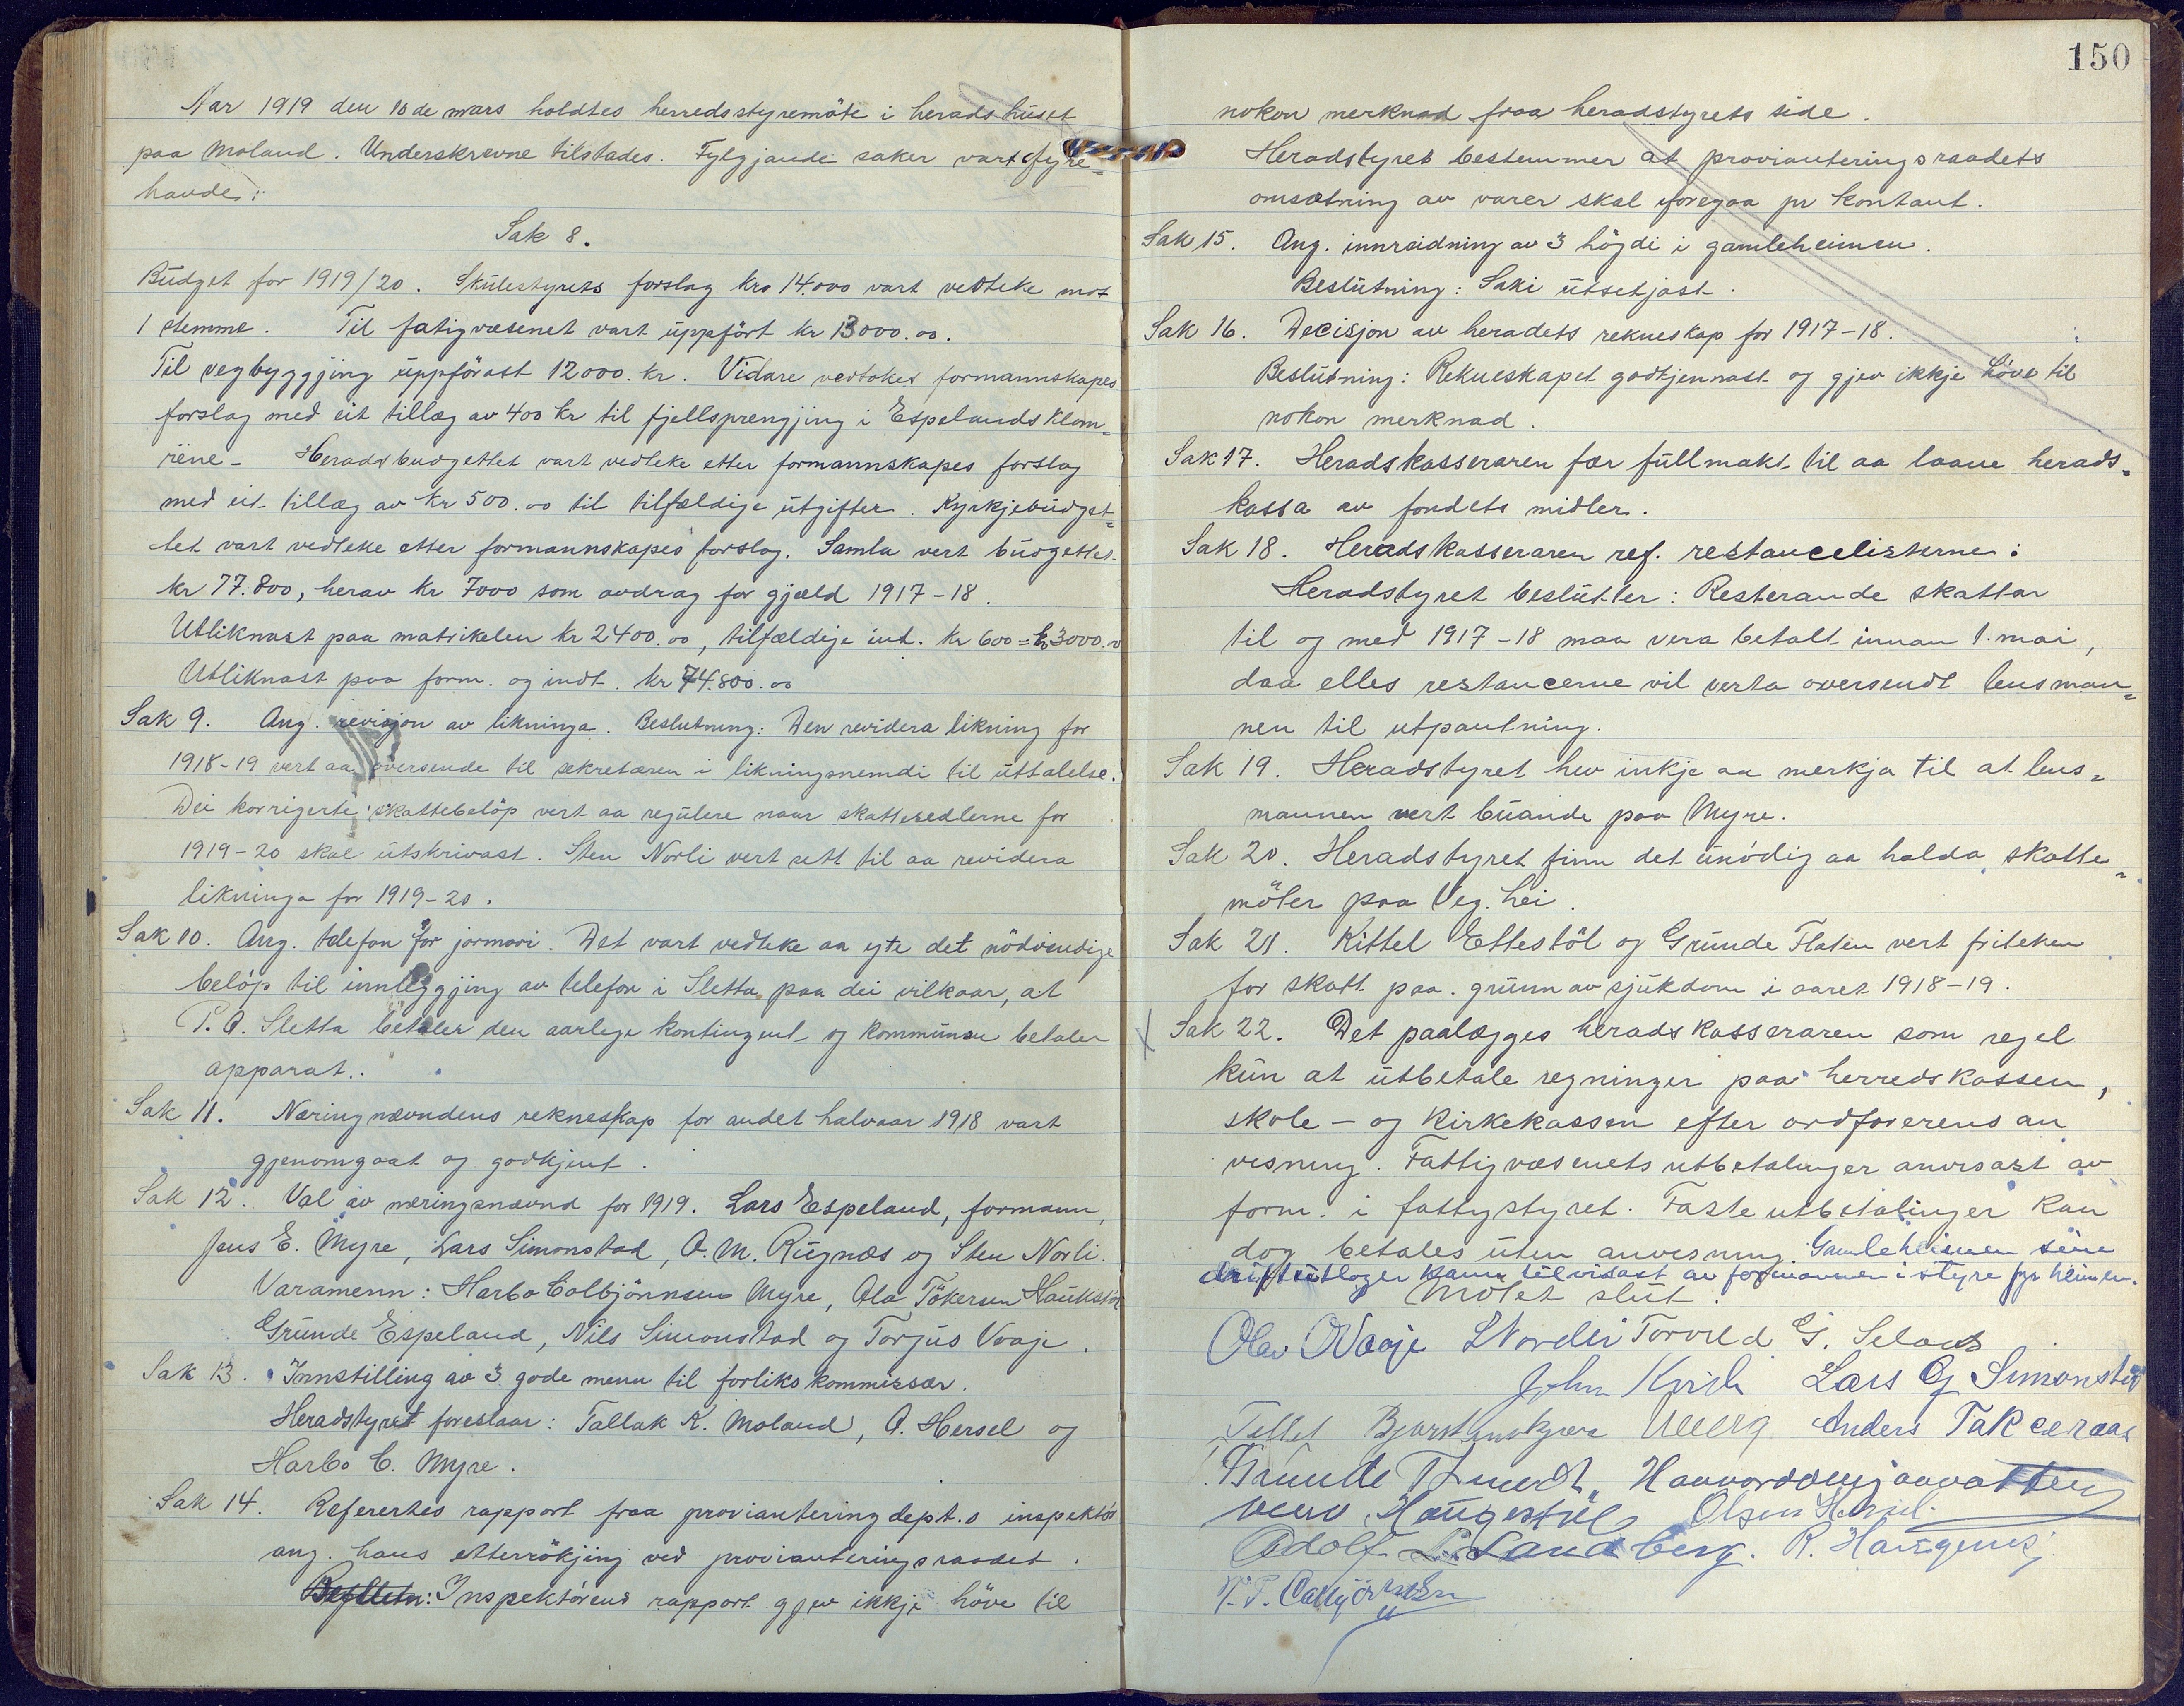 Aar 1919 den 10de mars holdtes herredsstyremöte i heradshuset
paa Moland. Underskrevne tilstades. Fylgjande saker vart fyre-
havde:
Sak 8.
Budget for 1919/20. Skulestyrets forslag kro 14.000 vart vedteke mot
1 stemme. Til fatigvæsenet vart uppfört kr 13000.00.
Til vegbyggjing uppförast 12000. kr. Vidare vedtokes formannskapes
forslag med eit tillæg av 400 kr til fjellsprengjing i Espelandsklom-
rene- Heradsbudgettet vart vedteke etter formannskapes forslag
med eit tillæg av kr 500.00 til tilfældige utgifter. Kyrkjebudget-
tet vart vedteke etter formannskapes forslag. Samla vert budgettet
kr 77.800, herav kr 7000 som avdrag for gjæld 1917-18.
Utliknast paa matrikelen kr 2400.00, tilfældige int. kr 600 = kr 3000.00
Utliknast paa form. og indt. kr 74.800.00
Sak 9. Ang. revisjon av likninga. Beslutning: Den revidera likning for
1918-19 vert aa oversende til sekretæren i likningsnemdi til uttalelse.
Dei korrigerte skattebelöp vert aa regulere naar skattesedlerne for
1919-20 skal utskrivast. Sten Norli vert sett til aa revidera
likninga for 1919-20.
Sak 10. Ang. telefon for jormori. Det vart vedteke aa yte det nödvendige
belöp til innleggjing av telefon i Sletta paa dei vilkaar, at
P.A. Sletta betaler den aarlege kontingent og kommunen betaler
apparat.
Sak 11. Næringnævndens rekneskap for andet halvaar 1918 vart
gjenomgaat og godkjent.
Sak 12. Val av næringsnævnd for 1919. Lars Espeland, formann,
Jens E. Myre, Lars Simonstad, O. M. Rugnæs og Sten Norli.
Varamenn: Harbo Colbjönnsen Myre, Ola Tökersen Haukstöl
Grunde Espeland, Nils Simonstad og Torjus Vaaje.
Sak 13. Innstilling av 3 gode menn til forlikskommissær.
Heradstyret foreslaar: Tallak K. Moland, O. Hersel og
Harbo C. Myre.
Sak 14. Refertes rapport fraa proviantering dept.s inspektör
ang. hans etterrökjing ved provianteringsraadet.
Inspektörens rapport gjev ikkje höve til
150
nokon merknad fraa heradstyrets side.
Heradstyret bestemmer at provianteringsraadets
omsætning av varer skal foregaa pr kontant.
Sak 15. Ang. innreidning av 3 högdi i gamleheimen.
Beslutning: Saki utsetjast.
Sak 16. Decisjon av heradets rekneskap for 1917-18.
Beslutning: Rekneskapet godkjennast og gjev ikkje höve til
nokon merknad.
Sak 17. Heradskasseraren fær fullmakt til aa laane herads-
kassa av fondets midler.
Sak 18. Heradskasseraren ref. restancelisterne:
Heradstyret beslutter: Resterande skattar
til og med 1917-18 maa vera betalt innan 1. mai,
daa elles restancerne vil verta oversendt lensman-
nen til utpantning.
Sak 19. Heradstyret hev inkje aa merkja til at lens-
mannen vert buande paa Myre.
Sak 20. Heradstyret finn det unödig aa halda skatte-
möter paa Veg. hei.
Sak 21. Kittel Ettestöl og Grunde Flaten vert friteken
for skatt paa grunn av sjukdom i aaret 1918-19.
x Sak 22. Det paalægges heradskasseraren som regel
kun at utbetale regninger paa herredskassen,
skole- og kirkekassen efter ordförerens an
visning. Fattigvæsenets utbetalinger anvisast av
form. i fattigstyret. Faste utbetalinger kan
dog betales uten anvisning. Gamleheimen sine
driftsutlæger kann tilvisast av formannen i styre fyr heimen.
Mötet slut.
Olav O Vaaje S Norli Torvild G. Selaas
John Lars G Simonstad
Tellef Anders Takseraas
Grunde
Haugestöl Olsen Hersel
Adolf Landberg. R.